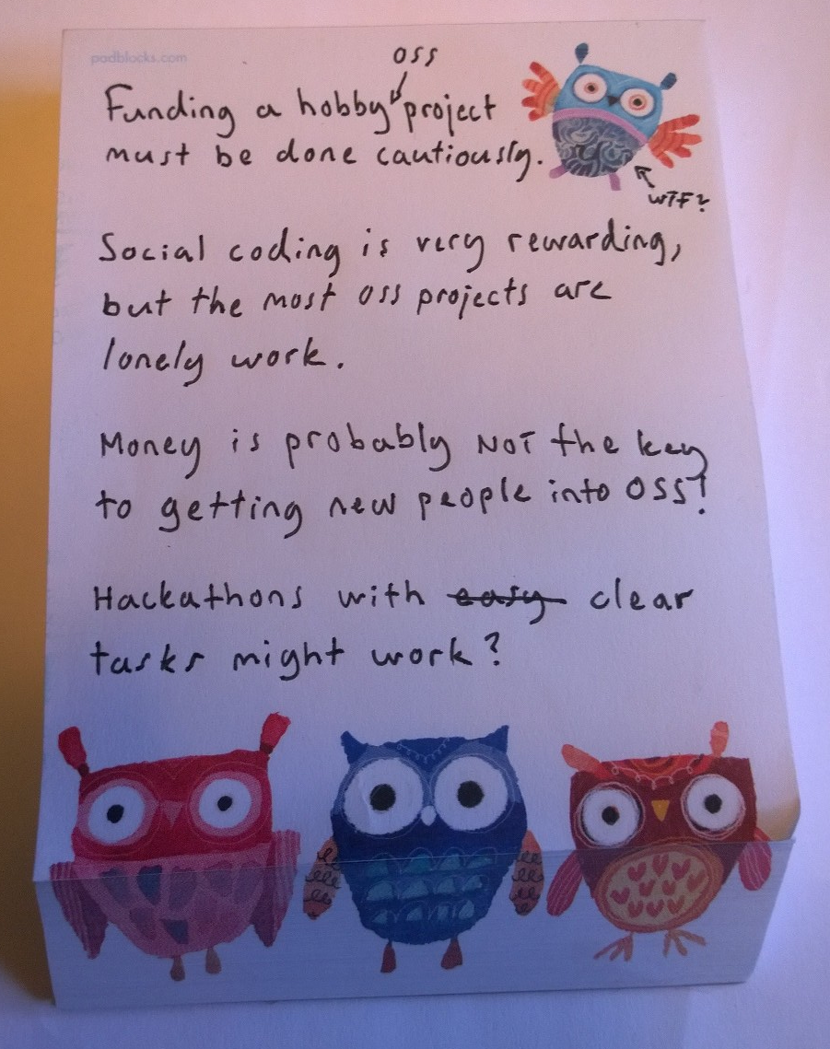 padblocks.com
oss
Funding a hobby project
must be done cautiously.
WTF?
Social coding is very rewarding,
but the most oss projects are
lonely work.
Money is probably NOT the key
to getting new people into OSS!
Hackathons with easy clear
tasks might work?